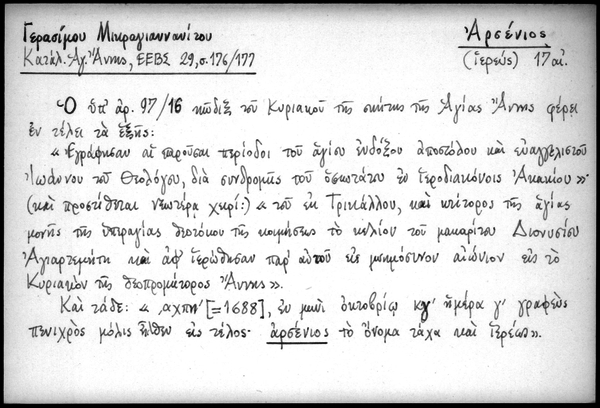 Γερασίμου Μικραγιαννανίτου
Ἀρσένιος
Κατάλ. Ἁγ. Ἄννης, ΕΕΒΣ 29, σ. 176/177
(ἱερεὺς) 17 αἰ.
Ὁ ὑπ' ἀρ. 97/16 κῶδιξ τοῦ Κυριακοῦ τῆς σκήτης τῆς Ἁγίας Ἄννης φέρει
ἐν τέλει τὰ ἑξῆς:
« Ἐγράφησαν αἱ παροῦσαι περίοδοι τοῦ ἁγίου ἐνδόξου ἀποστόλου καὶ εὐαγγελιστοῦ
Ἰωάννου τοῦ Θεολόγου, διὰ συνδρομῆς τοῦ ὁσιωτάτου ἐν ἱεροδιακόνοις Ἀκακίου »
(καὶ προστίθεται νεωτέρᾳ χειρί:) « τοῦ ἐκ Τρικάλλου, καὶ κτίτορος τῆς ἁγίας
μονῆς τῆς ὑπεραγίας θεοτόκου τῆς κοιμήσεως τὸ κελίον τοῦ μακαρίτου Διονυσίου
Ἁγιαρτεμήτη καὶ ἀφιερώθησαν παρ' αὐτοῦ εἰς μνημόσυνον αἰώνιον εἰς τὸ
Κυριακὸν τῆς θεοπρομάτορος Ἄννης ».
Καὶ τάδε: « ͵αχπη' [=1688], ἐν μηνὶ ὀκτοβρίῳ κγ' ἡμέρα γ' γραφεὺς
πενιχρὸς μόλις ἦλθεν εἰς τέλος· ἀρσένιος τὸ ὄνομα τάχα καὶ ἱερέως ».